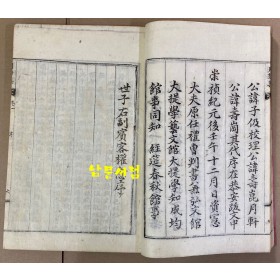 公諱子伋校理公諱壽崑月軒
公諱壽崗其代序在恭安跋文中
崇禎紀元後壬午十二月日資憲
大夫原任禮曹判書兼弘文館
大提學藝文館大提學知成均
館事同知 經筵春秋館事
世子右副賓客權序
남문서점